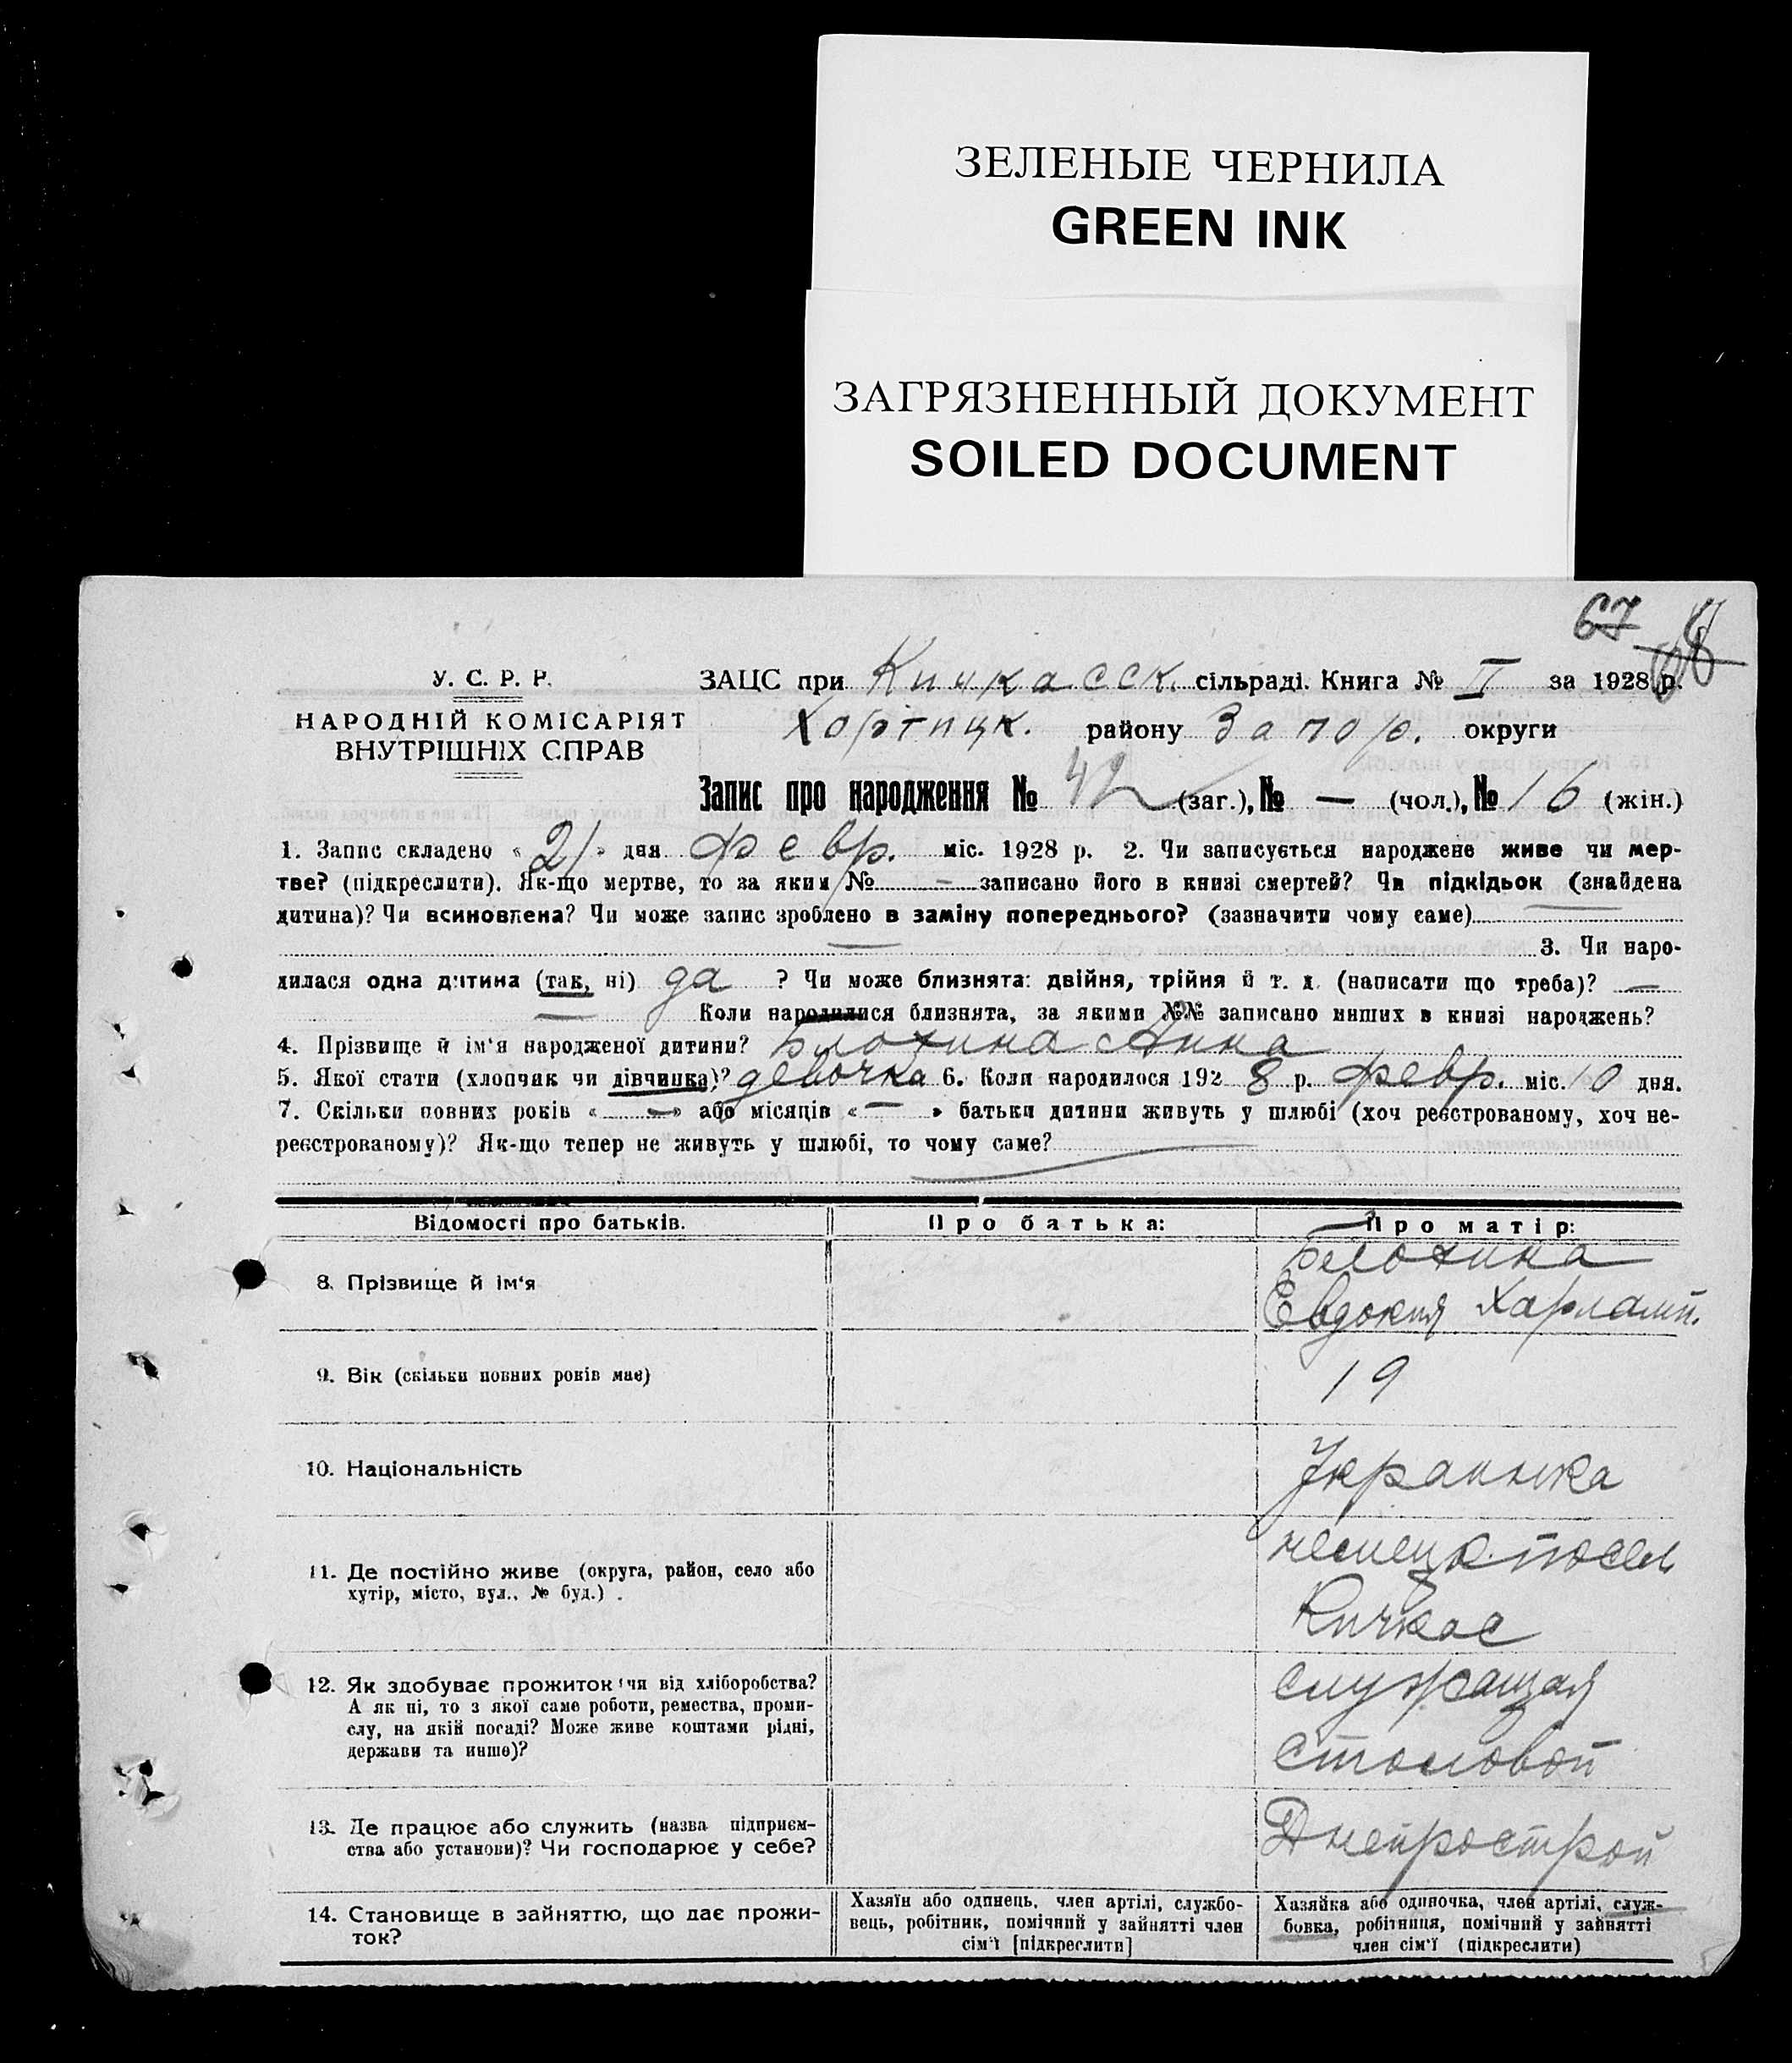 ЗЕЛЕНЫЕ ЧЕРНИЛА
GREEN INK
ЗАГРЯЗНЕННЫЙ ДОКУМЕНТ
SOILED DOCUMENT
67
У. С. Р. Р.
НАРОДНІЙ КОМІСАРІЯТ
ВНУТРІШНІХ СПРАВ
ЗАЦС при Кичкасск. сільраді. Книга № II за 1928 р.
Хортицк. району Запор. округи
Запис про народження № 42 (заг.), № — (чол.), № 16 (жін.)
1. Запис складено « 21 » дня февр. міс. 1928 р. 2. Чи записується народжене живе чи мер-
тве? (підкреслити). Як-що мертве, то за яким № — записано його в книзі смертей? Чи підкідьок (знайдена
дитина)? Чи всиновлена? Чи може запис зроблено в заміну попереднього? (зазначити чому саме)
— 3. Чи наро-
дилася одна дитина (так, ні) да ? Чи може близнята: двійня, трійня й т. д. (написати що треба)? —
— Коли народилися близнята, за якими №№ записано инших в книзі народжень?
4. Прізвище й ім'я народженої дитини? Блохина Анна
5. Якої стати (хлопчик чи дівчинка)? девочка 6. Коли народилося 192 8 р. февр. міс. 10 дня.
7. Скільки повних років « — » або місяців « — » батьки дитини живуть у шлюбі (хоч реєстрованому, хоч не-
реєстрованому)? Як-що тепер не живуть у шлюбі, то чому саме?
Відомості про батьків. Про батька: Про матір:
8. Прізвище й ім'я Блохина
Евдокия Харламп.
9. Вік (скільки повних років має) 19
10. Національність Украинка
11. Де постійно живе (округа, район, село або
хутір, місто, вул., № буд.) .
немецк. посел
Кичкас
12. Як здобуває прожиток чи від хліборобства?
А як ні, то з якої саме роботи, ремества, проми-
слу, на якій посаді? Може живе коштами рідні,
держави та инше)?
служащая
столовой
13. Де працює або служить (назва підприєм-
ства або установи)? Чи господарює у себе?
Днепрострой
14. Становище в зайняттю, що дає прожи-
ток?
Хазяїн або одинець, член артілі, службо-
вець, робітник, помічний у зайнятті член
сім'ї [підкреслити]
Хазяйка або одиночка, член артілі, служ-
бовка, робітниця, помічний у зайнятті
член сім'ї (підкреслити)